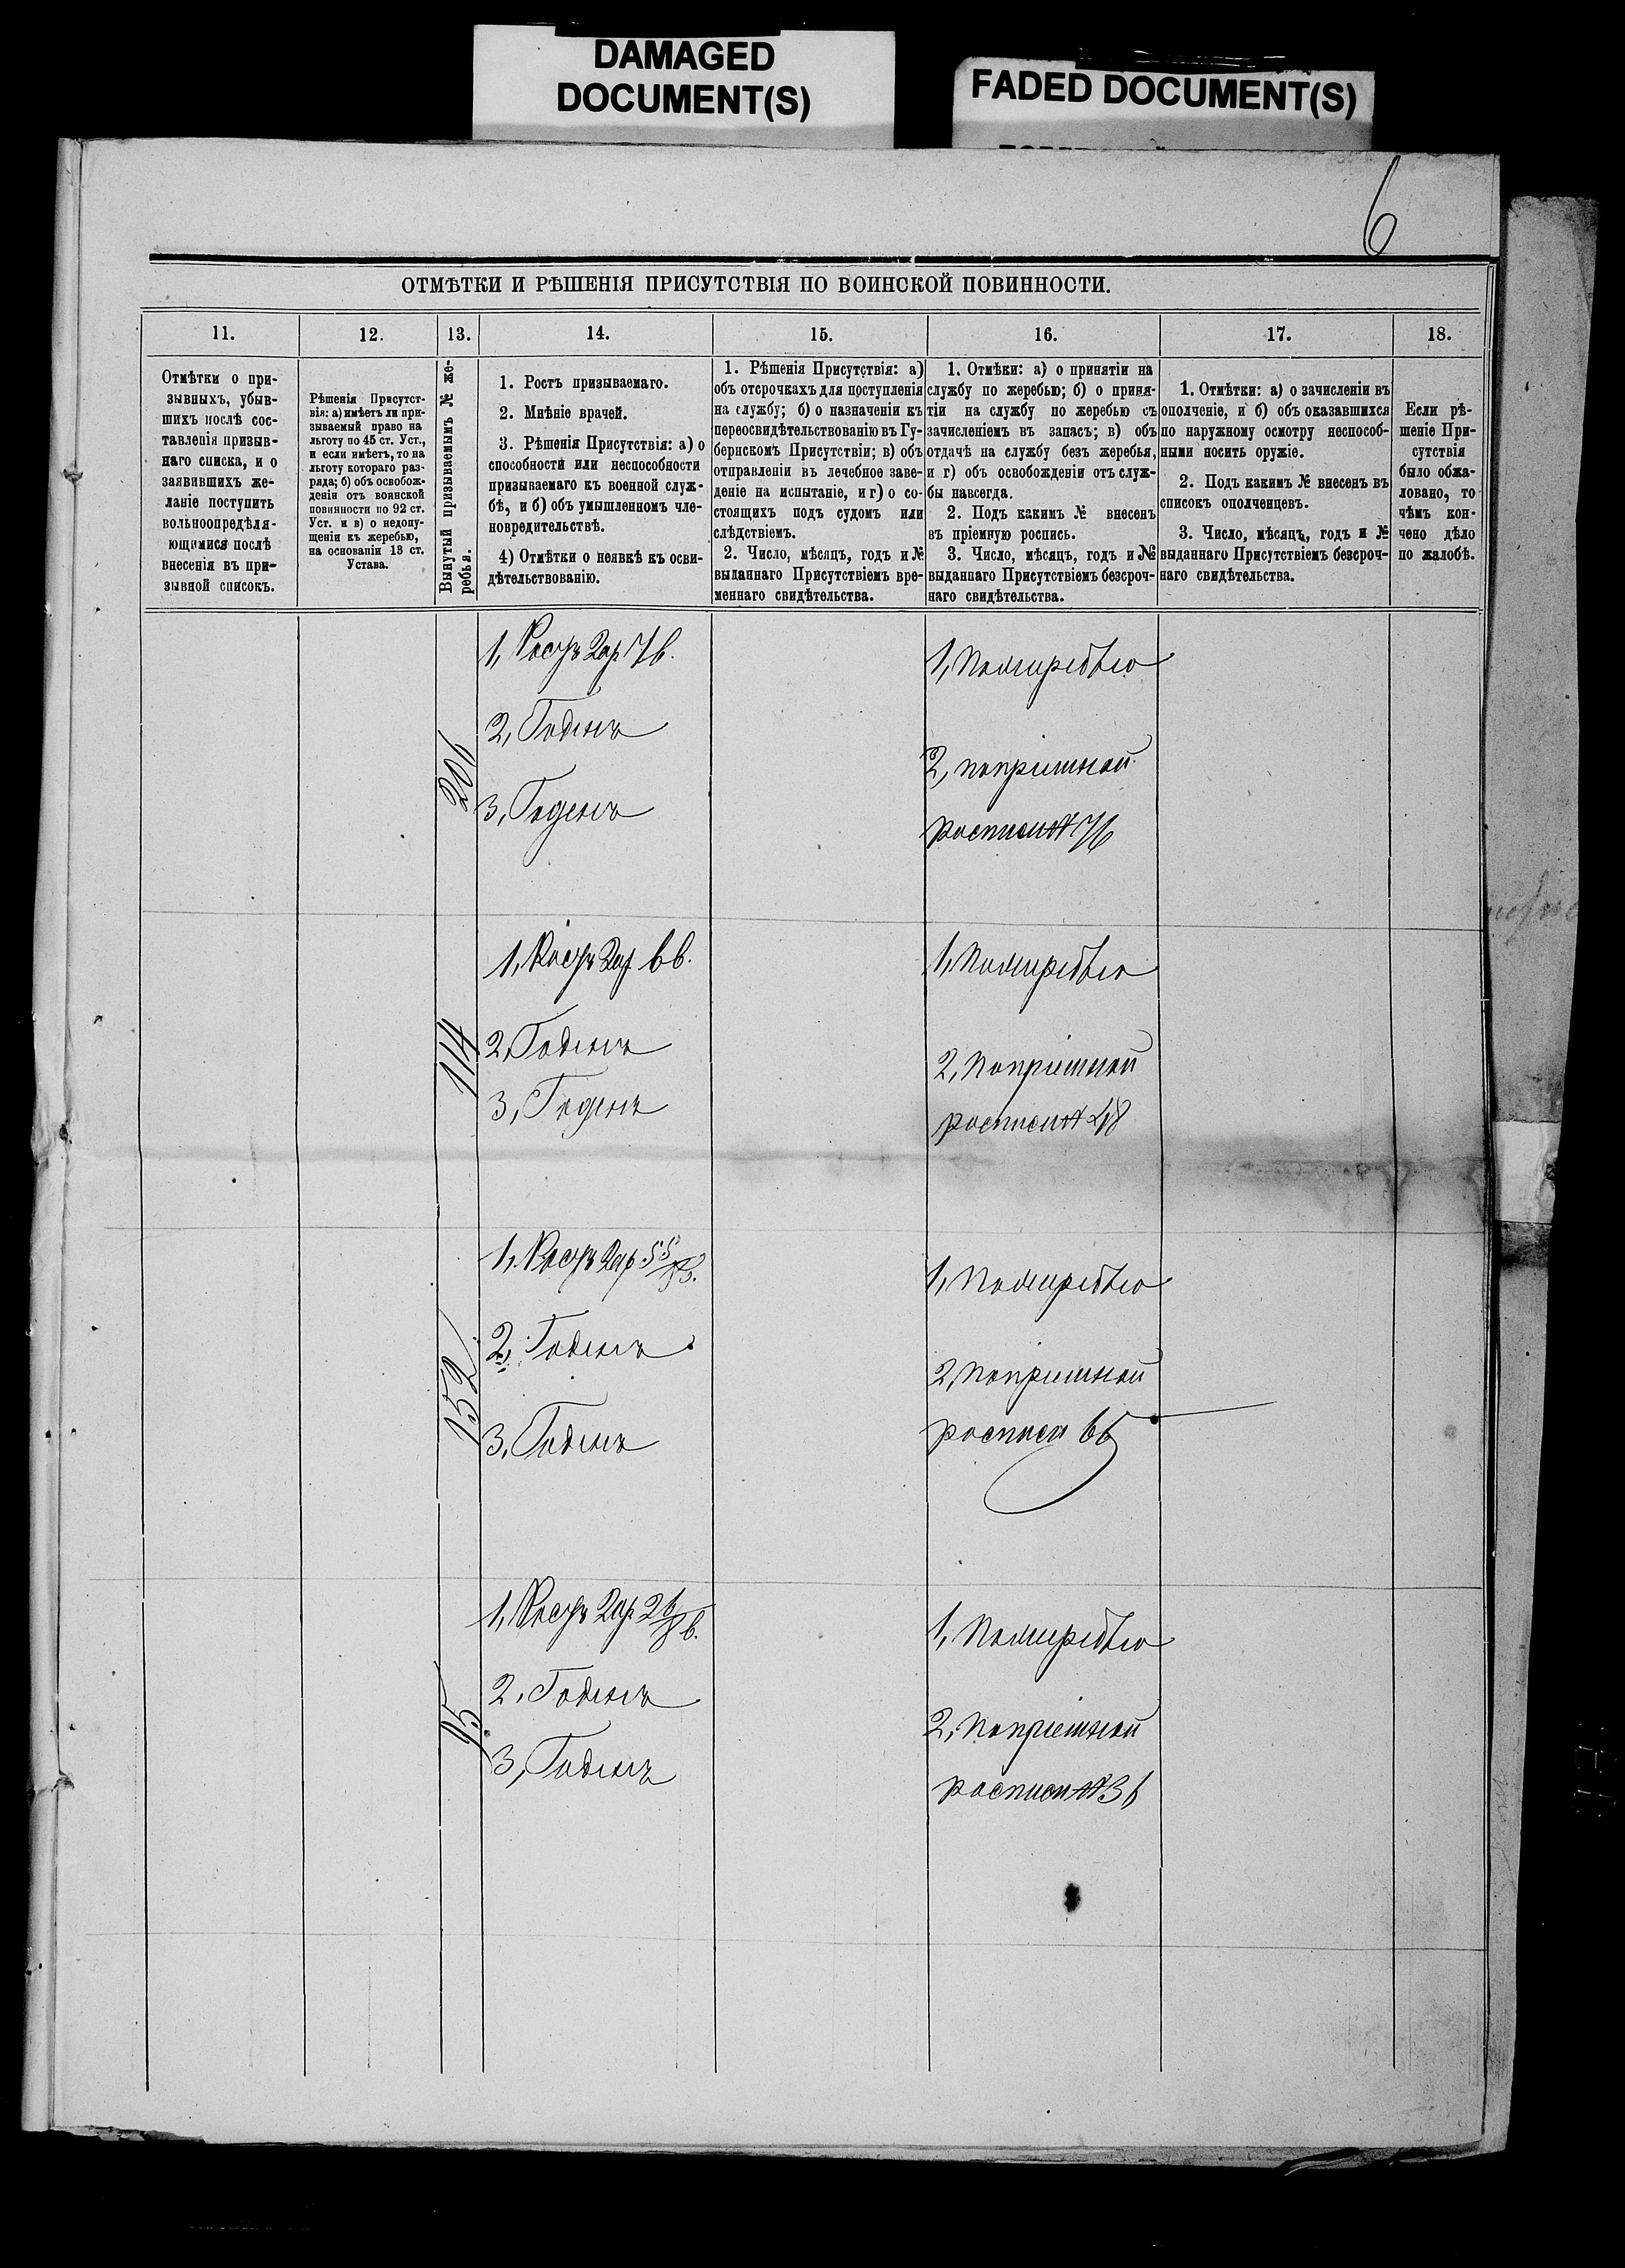 DAMAGED
DOCUMENT(S)
FADED DOCUMENT(S)
6
ОТМѢТКИ И РѢШЕНІЯ ПРИСУТСТВІЯ ПО ВОИНСКОЙ ПОВИННОСТИ.
11.
Отмѣтки о при-
зывныхъ, убыв-
шихъ послѣ сос-
тавленія призыв-
наго списка, и о
заявившихъ же-
ланіе поступить
вольноопредѣля-
ющимися послѣ
внесенія въ при-
зывной списокъ.
12.
Рѣшенія Присутст-
вія: а) имѣетъ ли при-
зываемый право на
льготу по 45 ст. Уст.,
и если имѣетъ, то на
льготу котораго раз-
ряда; б) объ освобож-
деніи отъ воинской
повинности по 92 ст.
Уст. и в) о недопу-
щеніи къ жеребью,
на основаніи 13 ст.
Устава.
13.
Вынутый призываемымъ № же-
ребья.
14.
1. Ростъ призываемаго.
2. Мнѣніе врачей.
3. Рѣшенія Присутствія: а) о
способности или неспособности
призываемаго къ военной служ-
бѣ, и б) объ умышленномъ чле-
новредительствѣ.
4) Отмѣтки о неявкѣ къ осви-
дѣтельствованію.
15.
1. Рѣшенія Присутствія: а)
объ отсрочкахъ для поступленія
на службу; б) о назначеніи къ
переосвидѣтельствованію въ Гу-
бернскомъ Присутствіи; в) объ
отправленіи въ лечебное заве-
деніе на испытаніе, и г) о со-
стоящихъ подъ судомъ или
слѣдствіемъ.
2. Число, мѣсяцъ, годъ и №
выданнаго Присутствіемъ вре-
меннаго свидѣтельства.
16.
1. Отмѣки: а) о принятіи на
службу по жеребью; б) о приня-
тіи на службу по жеребью съ
зачисленіемъ въ запасъ; в) объ
отдачѣ на службу безъ жеребья,
и г) объ освобожденіи отъ служ-
бы навсегда.
2. Подъ какимъ № внесенъ
въ пріемную роспись.
3. Число, мѣсяцъ, годъ и №
выданнаго Присутствіемъ безсроч-
наго свидѣтельства.
17.
1. Отмѣтки: а) о зачисленіи въ
ополченіе, и б) объ оказавшихся
по наружному осмотру неспособ-
ными носить оружіе.
2. Подъ какимъ № внесенъ въ
списокъ ополченцевъ.
3. Число, мѣсяцъ, годъ и №
выданнаго Присутствіемъ безсроч-
наго свидѣтельства.
18.
Если рѣ-
шеніе При-
сутствія
было обжа-
ловано, то
чѣмъ кон-
чено дѣло
по жалобѣ.
206
1, Ростъ 2 ар 7 в.
2, Годенъ
3, Годенъ
1, По жеребью
2, по пріемной
росписи № 76
114
1, Ростъ 2 ар 6 в.
2, Годенъ
3, Годенъ
1, По жеребью
2, По пріемной
росписи № 48
152
1, Ростъ 2 ар 5 5/8 в.
2, Годенъ
3, Годенъ
1, По жеребью
2, По пріемной
росписи 66
95
1, Ростъ 2 ар 2 6/8 в.
2, Годенъ
3, Годенъ
1, По жеребью
2, По пріемной
росписи № 36